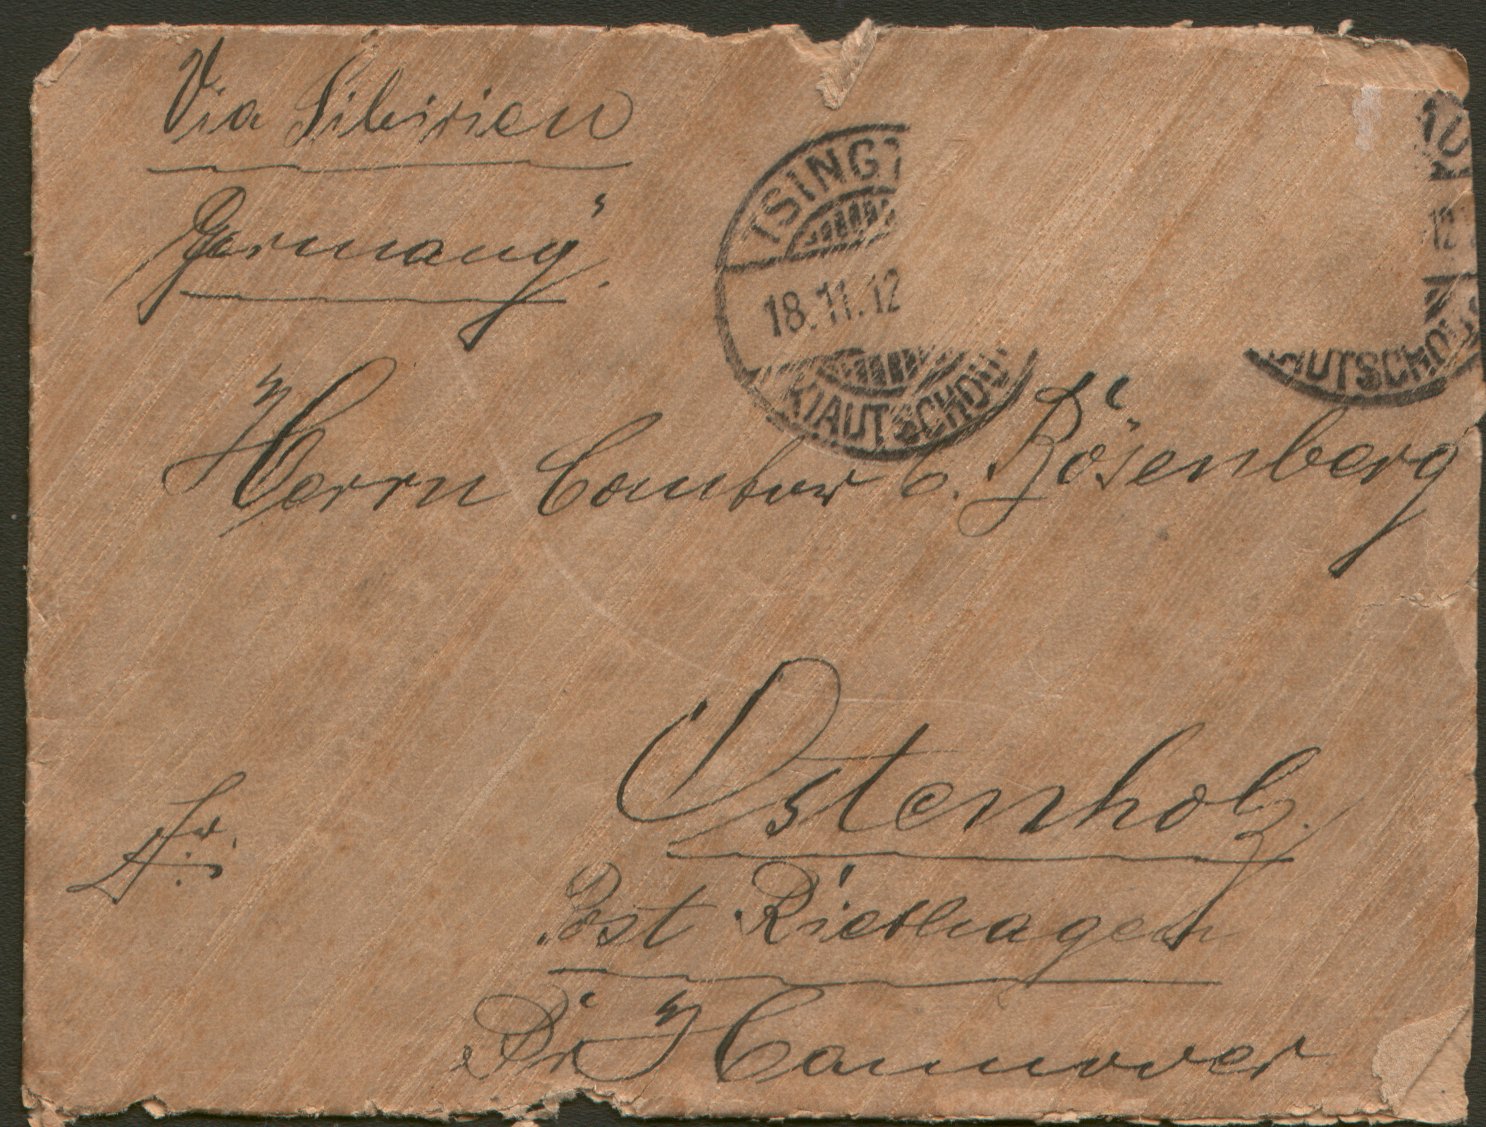 Via Sibirien
Germany
TSINGT
18.11.12
KIAUTSCHOU
12
KIAUTSCHOU
Herrn Cantor C. Rösenberg
Ostenholz.
Post Riethagen
Pr Hannover